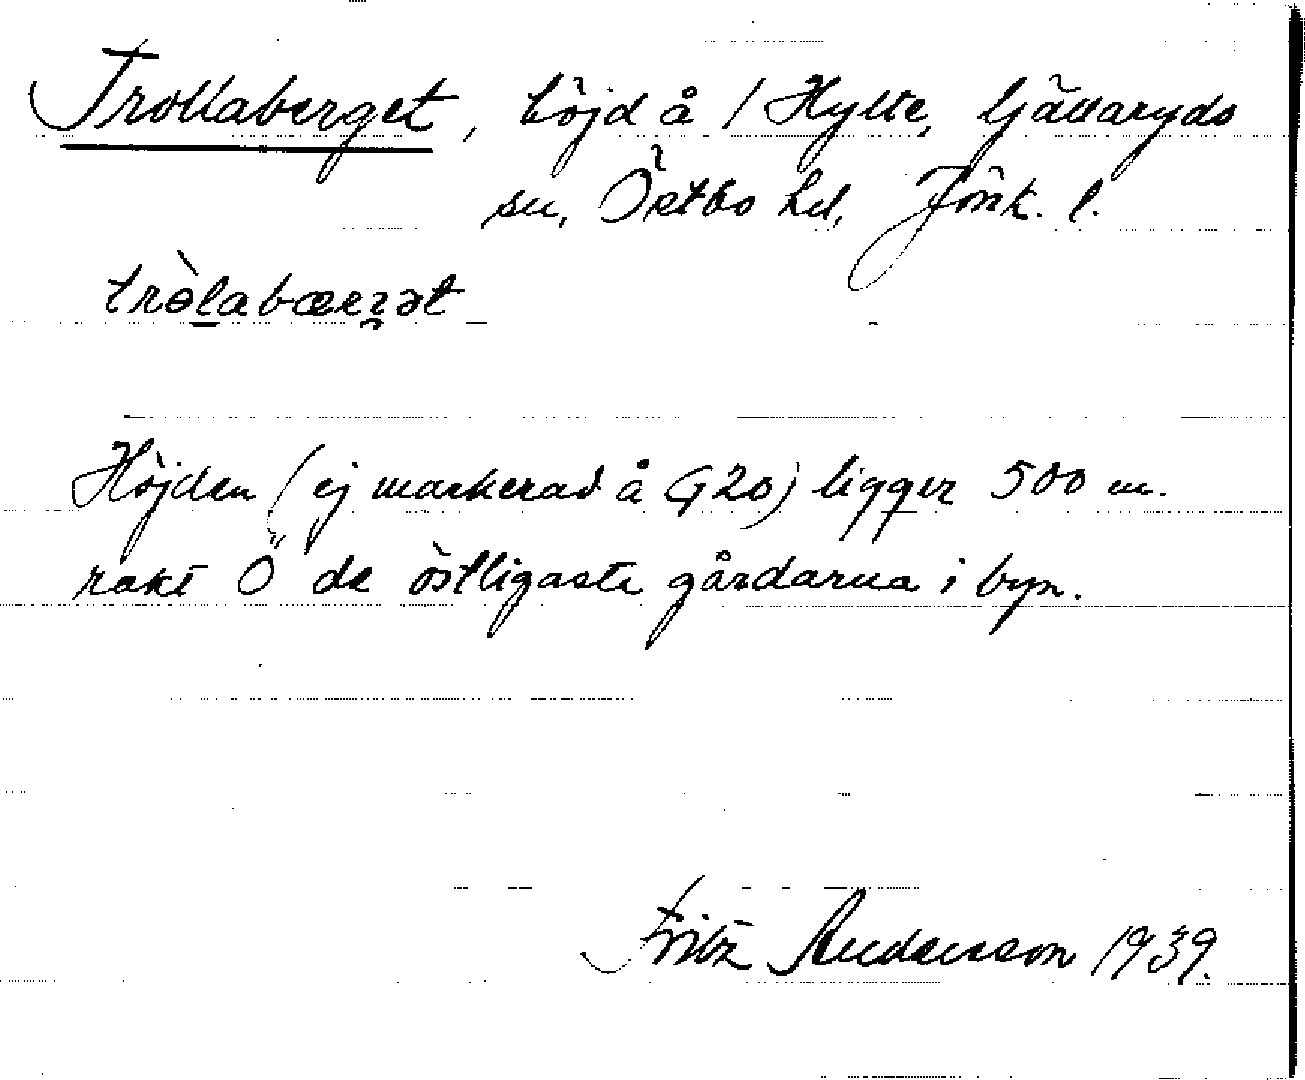 Trollaberget, höjd å / Hylte, Gällaryds
sn, Östbo hd, Jönk. l.
Höjden (ej markerad å G20) ligger 500 m.
rakt Ö de östligaste gårdarna i byn.
Fritz Andersson 1939.